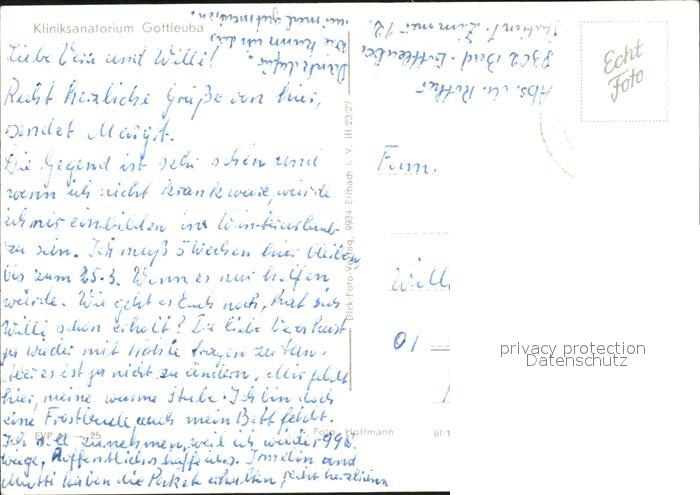 Kliniksanatorium Gottleuba
Liebe Vera und Willi!
Recht herzliche Grüße von hier,
sendet Margot.
Die Gegend ist sehr schön und
wenn ich nicht krank wäre, würde
ich mir einbilden im Winterurlaub
zu sein. Ich muß 5 Wochen hier bleiben
bis zum 25.3. Wenn es nur helfen
würde. Wie geht es Euch noch, hat sich
Willi schon erholt? Die liebe
ja wieder mit Kohle tragen zu tun.
Aber es ist ja nicht zu ändern. Mir fehlt
hier, meine warme Stube. Ich bin doch
eine Frostbeule auch mein Bett fehlt.
Ich soll zunehmen, weil ich wieder 99
wiege, hoffentlich. und
Mutti haben die Pakete erhalten, recht herzlichen
Dank dafür.
Abs. M.
8302 Bad-Gottleuba
Zimmer 12.
Echt
Foto
Fam.
Willi
01
Dick-Foto-Verlag, 9934 Erlbach i. V. III/23/27
EVP M -,25
Foto: Hoffmann
III/1
privacy protection
Datenschutz